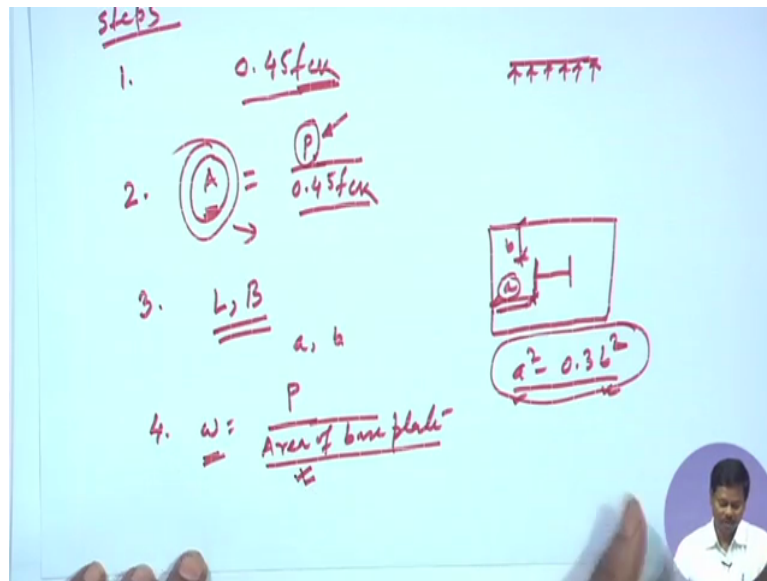 steps
1. 0.45fck
2. A = P / 0.45fck
3. L, B
a, b
4. w = P / Area of base plate
b
a
a² - 0.3b²